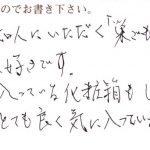 のでお書き下さい。
知人にいただく「巣でも
好きです。
入っている化粧箱もし
とても良く気に入ってい